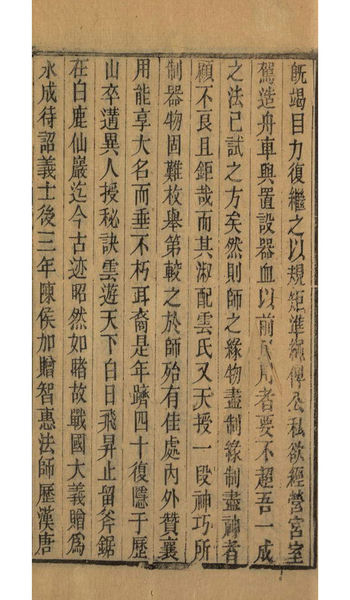 既竭目力復繼之以規矩準繩俾公私欲經營宮室
駕造舟車與置設器皿以前民用者要不超吾一成
之法已試之方矣然則師之緣物盡制緣制盡神者
顧不良且鉅哉而其淑配雲氏又天授一段神巧所
制器物固難枚舉第較之於師殆有佳處內外贊襄
用能享大名而垂不朽耳裔是年躋四十復隱于歷
山卒遘異人授秘訣雲遊天下白日飛昇止留斧鋸
在白鹿仙巖迄今古迹昭然如睹故戰國大義贈為
永成待詔義士後三年陳侯加贈智惠法師歷漢唐